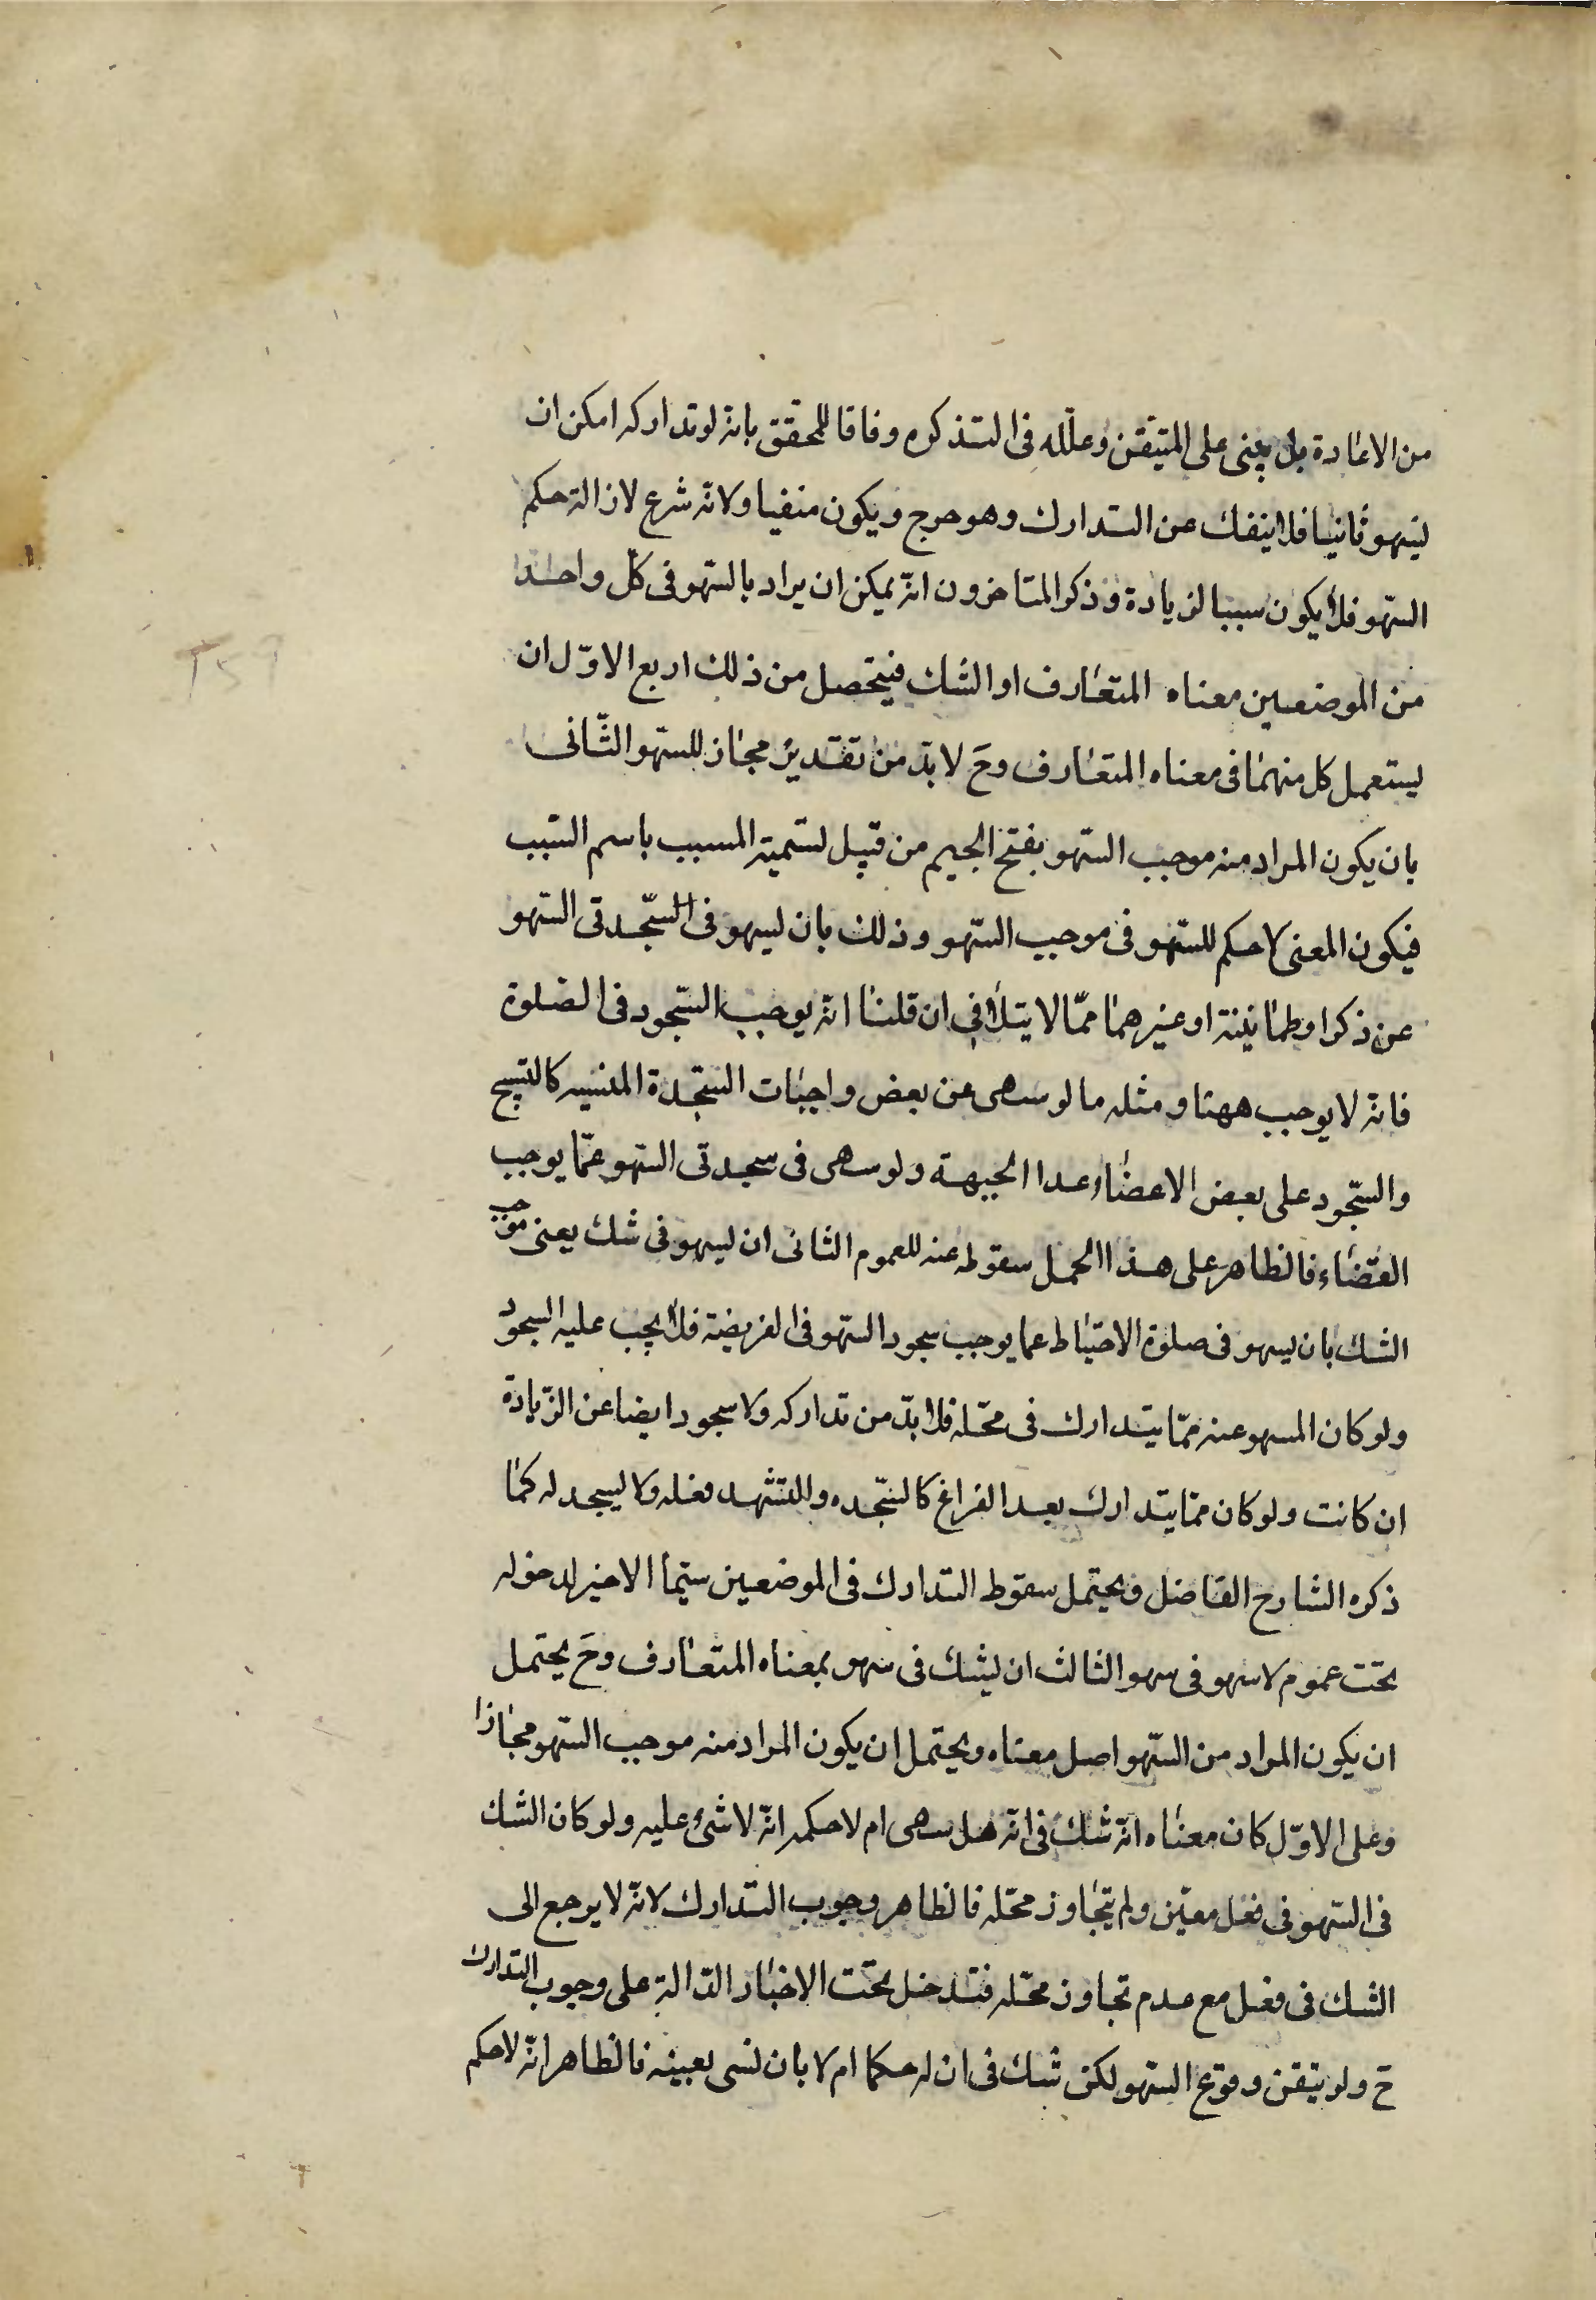 من الاعادة بل يبنى على المتيقن وعلّله فى التذكره وفاقا للمحقق بانه لو تداركه امكن ان
ليسهو ثانيا فلا ينفك عن التدارك وهو حرج ويكون منفيا ولانه شرع لازالة حكم
السّهو فلا يكون سببا لزيادة وذكر المتاخرون انّه يمكن ان يراد بالسّهو فى كلّ واحد
من الموضعين معناه المتعارف او الشك فيتحصل من ذلك اربع الاوّل ان
يستعمل كل منهما فى معناه المتعارف وحَ لا بدّ من تقدير مجاز للسّهو الثّانى
بان يكون المراد منه موجب السّهو بفتح الجيم من قبيل تسمية المسبب باسم السّبب
فيكون المعنى لا حكم للسّهو فى موجب السّهو وذلك بان ليسهو فى السّجدتى السّهو
عن ذكر او طمانينة او غيرهما ممّا لا يتلافى ان قلنا انه يوجب السّجود فى الصلوة
فانه لا يوجب ههنا ومثله ما لو سهى عن بعض واجبات السّجدة المنسيه كالتسبيح
والسّجود على بعض الاعضاء عدا الجبهة ولو سهى فى سجدتى السّهو عمّا يوجب
القضاء فالظاهر على هذا الحمل سقوطه عنه للعموم الثانى ان ليسهو فى شك يعنى موجب
الشك بان يسهو فى صلوة الاحتياط عما يوجب سجود السّهو فى الفريضة فلا يجب عليه السجود
ولو كان المسهو عنه ممّا يتدارك فى محّله فلا بدّ من تداركه ولا سجود ايضا عن الزّيادة
ان كانت ولو كان ممّا يتدارك بعد الفراغ كالسّجده والتشهد فعله ولا ليسجد له كما
ذكره الشارح الفاضل ويحتمل سقوط التدارك فى الموضعين سيّما الاخير لدخوله
تحت عموم لا سهو فى سهو الثالث ان ليشك فى سهو بمعناه المتعارف وحَ يحتمل
ان يكون المراد من السّهو اصل معناه ويحتمل ان يكون المراد منه موجب السّهو مجازا
وعلى الاوّل كان معناه انّه شك فى انّه هل سهى ام لا حكمه انّه لا شئ عليه ولو كان الشك
فى السّهو فى فعل معيّن ولم يتجاوز محّله فالظاهر وجوب التدارك لانّه لا يرجع الى
الشك فى فعل مع عدم تجاوز محّله فتدخل تحت الاخبار الدّالة على وجوب التدارك
حَ ولو تيقن وقوع السّهو لكن شك فى ان له حكما ام لا بان نسى بعينه فالظاهر انّه لا حكم